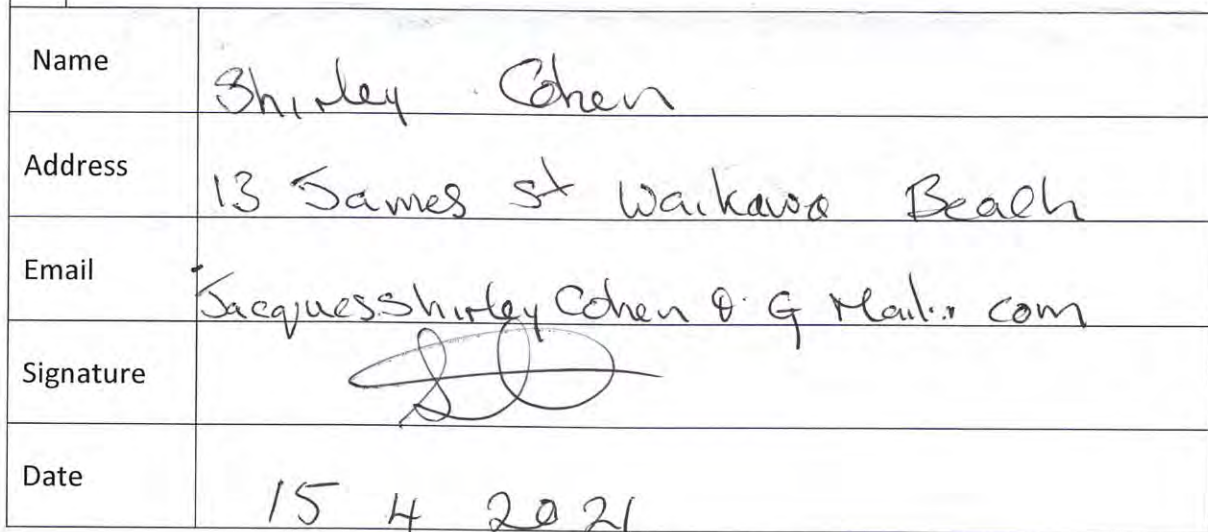 Name Shirley Cohen
Address 13 James St Waikawa Beach
Email JacquesShirleyCohen @ G Mail. com
Signature
Date 15 4 2021